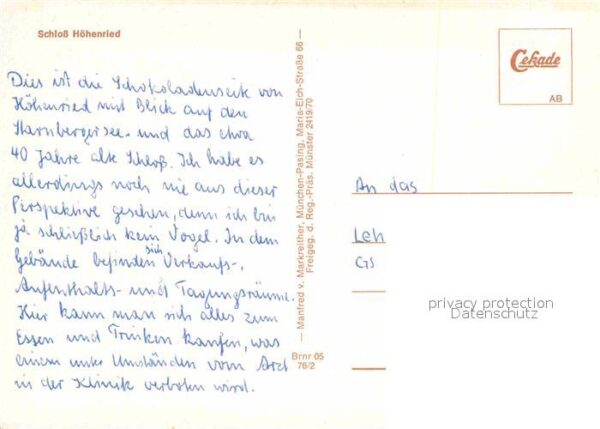 Schloß Höhenried
Dies ist die Schokoladenseite von
Höhenried mit Blick auf den
Starnbergersee und das etwa
40 Jahre alte Schloß. Ich habe es
allerdings noch nie aus dieser
Perspektive gesehen, denn ich bin
ja schließlich kein Vogel. In dem
Gebäude befinden sich Verkaufs-,
Aufenthalts- und Tagungsräume.
Hier kann man sich alles zum
Essen und Trinken kaufen, was
einem unter Umständen vom Arzt
in der Klinik verboten wird.
— Manfred v. Markreither, München-Pasing, Maria-Eich-Straße 66 —
Freigeg. d. Reg.-Präs. Münster 2419/70
Brnr 05
76/2
Cekade
AB
An das
Leh
GS
privacy protection
Datenschutz